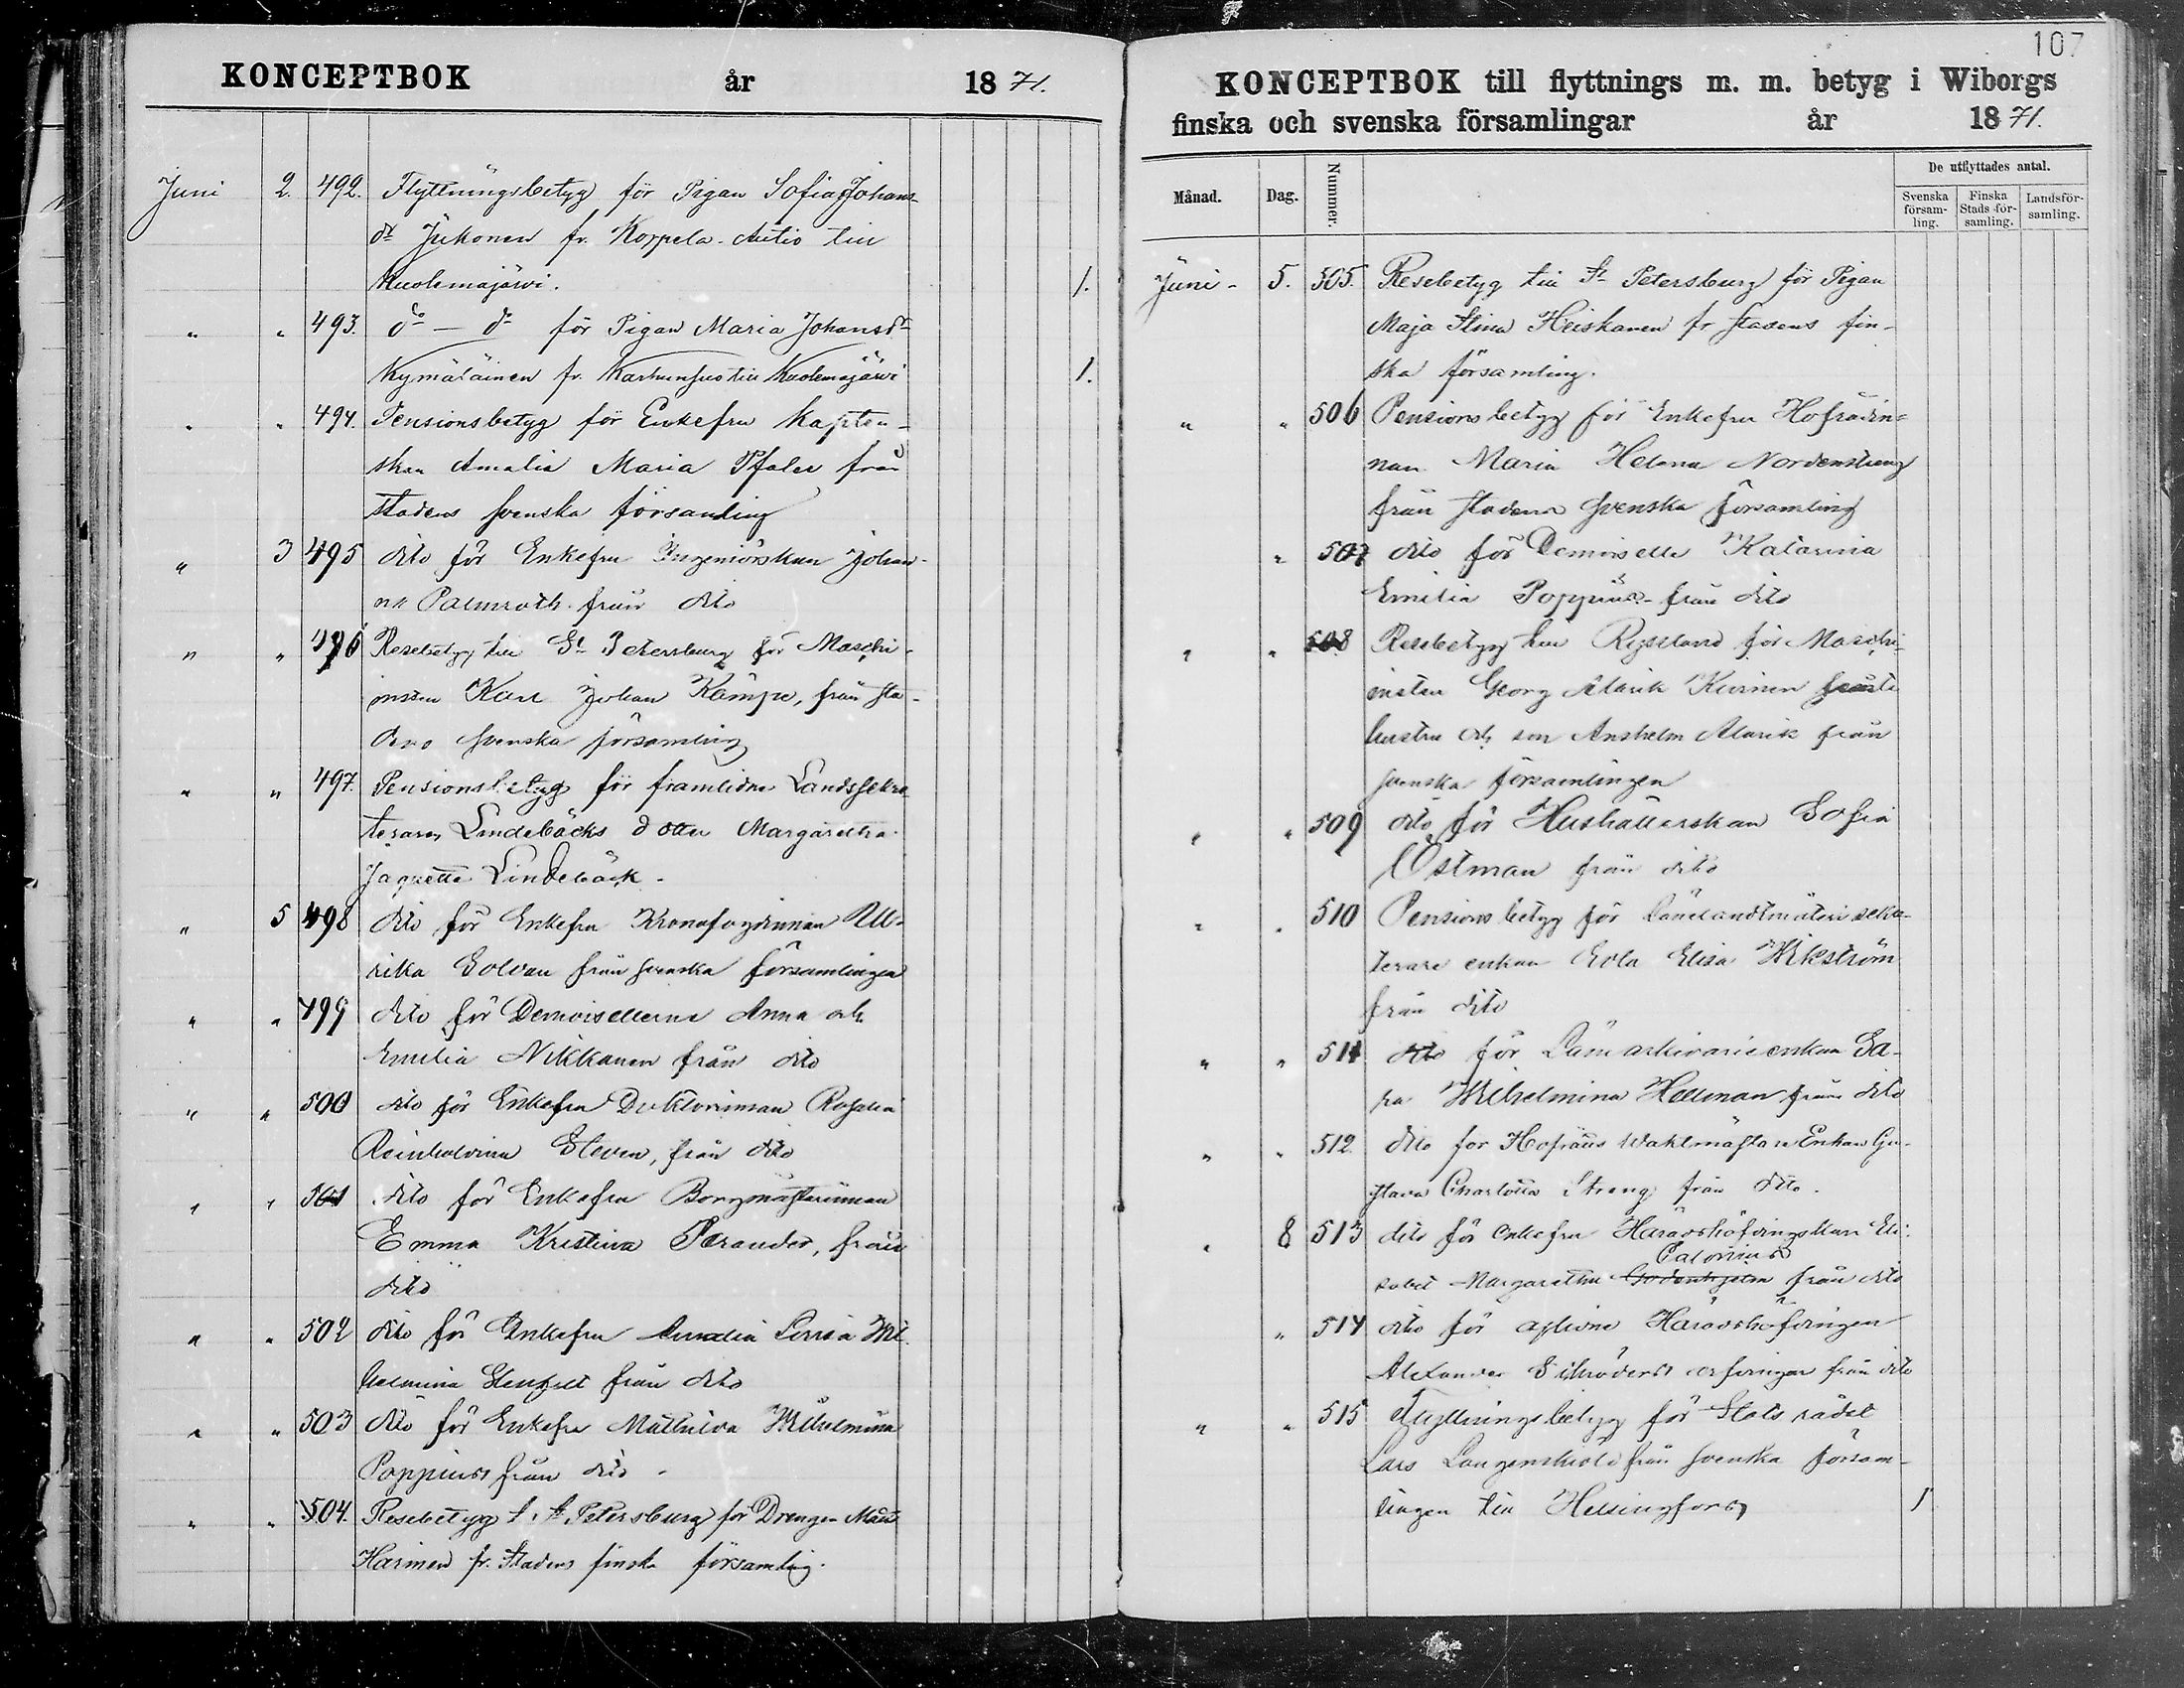 KONCEPTBOK år 1871.
Juni 2. 492. Flyttningsbetyg för Pigan Sofia Johans-
dr Jukonen fr. Koppela-Autio till
Kuolemajärvi. 1.
" " 493. do — do för Pigan Maria Johansdr
Kymäläinen fr. Karhunsuo till Kuolemajärvi 1.
" " 494. Pensionsbetyg för Enkefru Kapten-
skan Amalia Maria Pfaler från
stadens svenska församling
" 3 495 dito för Enkefru Ingeniörskan Johan-
na Palmroth från dito
" " 496 Resebetyg till St Petersburg för Maschi-
nisten Karl Johan Kämpe, från sta-
dens svenska församling
" " 497. Pensionsbetyg för framlidne Landssekre-
teraren Lindebäcks dotter Margaretha
Jaquette Lindebäck.
" 5 498 dito för Enkefru Kronofogdinnan Ul-
rika Solvan från svenska församlingen
" " 499 dito för Demoisellerna Anna och
Emilia Nikkanen från dito
" " 500 dito för Enkefru Doktorinnan Rosalia
Reinholdina Steven, från dito
" " 501 dito för Enkefru Borgmästarinnan
Emma Kristina Perander, från
dito
" " 502 dito för Enkefru Amalia Lovisa Wil-
helmina från dito
" " 503 dito för Enkefru Mathilda Wilhelmina
Poppius från dito.
" " 504. Resebetyg t. St Petersburg för Drengen
Harinen fr. Stadens finska församling.
107
KONCEPTBOK till flyttnings m. m. betyg i Wiborgs
finska och svenska församlingar år 1871.
Månad. Dag. Nummer. De utflyttades antal.
Svenska församling. Finska Stads-församling. Landsförsamling.
Juni - 5. 505. Resebetyg till St Petersburg för Pigan
Maja Stina Heiskanen fr stadens fin-
ska församling.
" " 506 Pensionsbetyg för Enkefru Hofrådin-
nan Maria Helena Nordenstreng
från stadens svenska församling
" 507 dito för Demoiselle Katarina
Emilia Poppius från dito
" " 508 Resebetyg till Ryssland för Maschi-
nisten Georg Alarik Kurinen
hustru och son Anshelm Alarik från
svenska församlingen
" " 509 dito för Hushållerskan Sofia
Östman från dito
" " 510 Pensionsbetyg för Länelandtmäteri sekre-
terare enkan Eva Elisa Wikström
från dito
" " 511 dito för Länearkivarie enkan Sa-
ra Wilhelmina Hellman från dito
" " 512. dito för Hofräts Waktmästare Enkan Gu-
stava Charlotta Streng från dito.
" 8 513 dito för Enkefru Häradshöfdingskan Eli-
Calonius
sabet Margaretha från dito
" 514 dito för aflidne Häradshöfdingen
Alexander Schröders arfvingar från dito
" " 515 Flyttningsbetyg för Statsrådet
Lars Langenskiöld från svenska försam-
lingen till Helsingfors 1